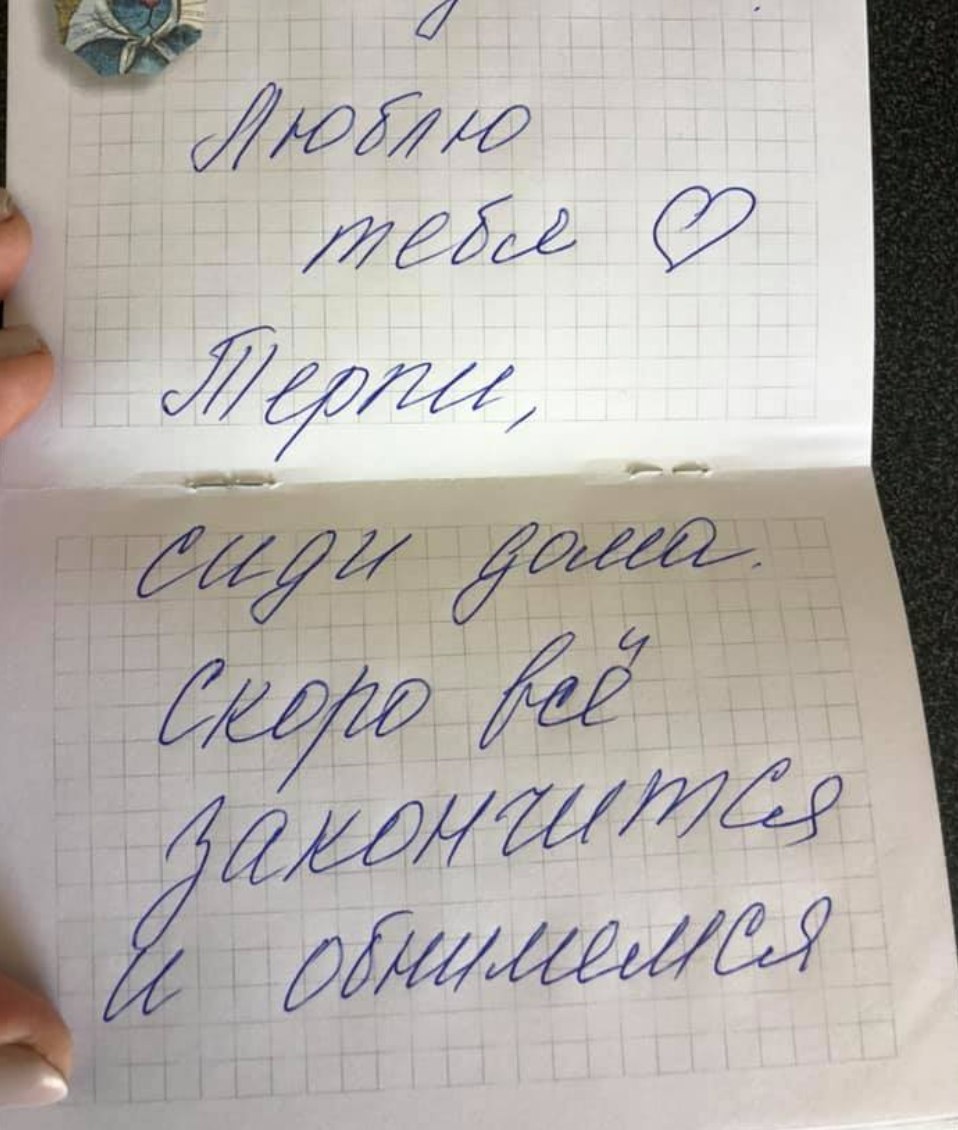 Люблю
тебя ♡
Терпи,
сиди дома.
Скоро всё
закончится
и обнимемся